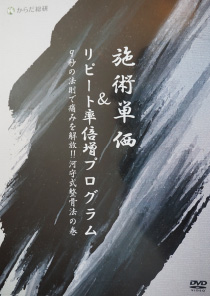 からだ総研
施術単価
&
リピート率倍増プログラム
9秒の法則で痛みを解放!!河守式整骨法の巻
DVD